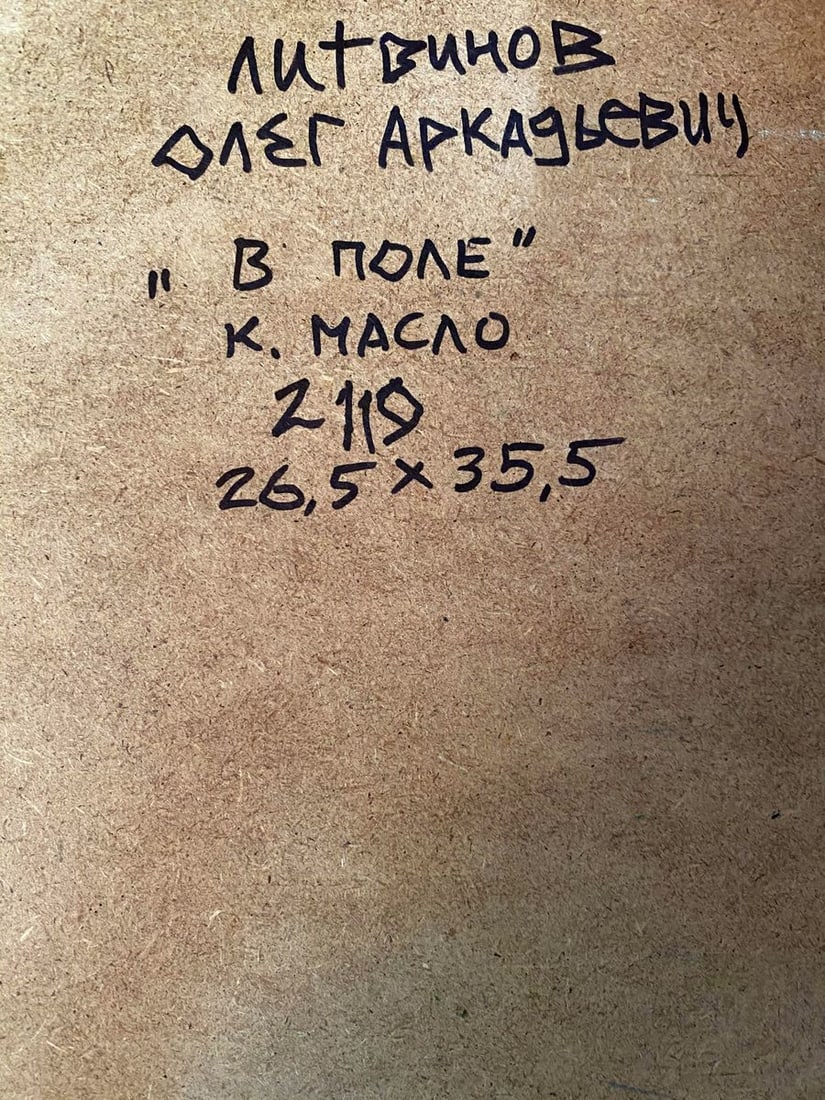 ЛИТВИНОВ
ОЛЕГ АРКАДЬЕВИЧ
„ В ПОЛЕ "
К. МАСЛО
2119
26,5 × 35,5